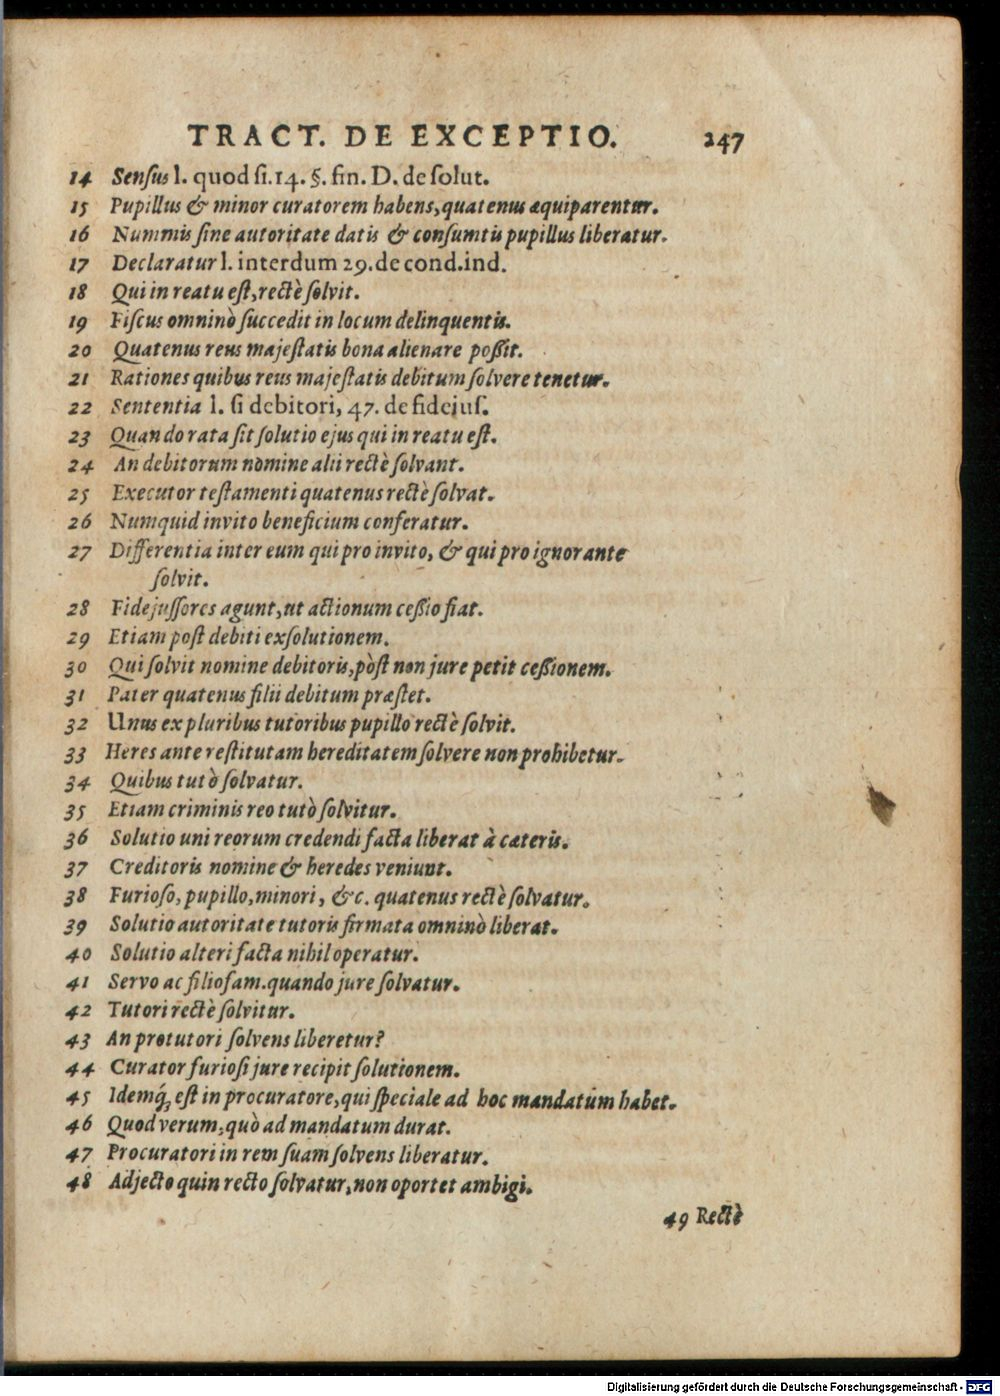 TRACT. DE EXCEPTIO. 247
14 Sensus l. quod si. 14. §. fin. D. de solut.
15 Pupillus & minor curatorem habens, quatenus æquiparentur.
16 Nummis sine autoritate datis & consumtis pupillus liberatur.
17 Declaratur l. interdum 29. de cond. ind.
18 Qui in reatu est, rectè solvit.
19 Fiscus omninò succedit in locum delinquentis.
20 Quatenus reus majestatis bona alienare possit.
21 Rationes quibus reus majestatis debitum solvere tenetur.
22 Sententia l. si debitori, 47. de fidejus.
23 Quando rata sit solutio ejus qui in reatu est.
24 An debitorum nomine alii rectè solvant.
25 Executor testamenti quatenus rectè solvat.
26 Numquid invito beneficium conferatur.
27 Differentia inter eum qui pro invito, & qui pro ignorante
solvit.
28 Fidejussores agunt, ut actionum cessio fiat.
29 Etiam post debiti exsolutionem.
30 Qui solvit nomine debitoris, pòst non jure petit cessionem.
31 Pater quatenus filii debitum præstet.
32 Unus ex pluribus tutoribus pupillo rectè solvit.
33 Heres ante restitutam hereditatem solvere non prohibetur.
34 Quibus tutò solvatur.
35 Etiam criminis reo tutò solvitur.
36 Solutio uni reorum credendi facta liberat à cæteris.
37 Creditoris nomine & heredes veniunt.
38 Furioso, pupillo, minori, &c. quatenus rectè solvatur.
39 Solutio autoritate tutoris firmata omninò liberat.
40 Solutio alteri facta nihil operatur.
41 Servo ac filiofam. quando jure solvatur.
42 Tutori rectè solvitur.
43 An protutori solvens liberetur?
44 Curator furiosi jure recipit solutionem.
45 Idemq́; est in procuratore, qui speciale ad hoc mandatum habet.
46 Quod verum, quò ad mandatum durat.
47 Procuratori in rem suam solvens liberatur.
48 Adjecto quin recto solvatur, non oportet ambigi.
49 Rectè
Digitalisierung gefördert durch die Deutsche Forschungsgemeinschaft - DFG